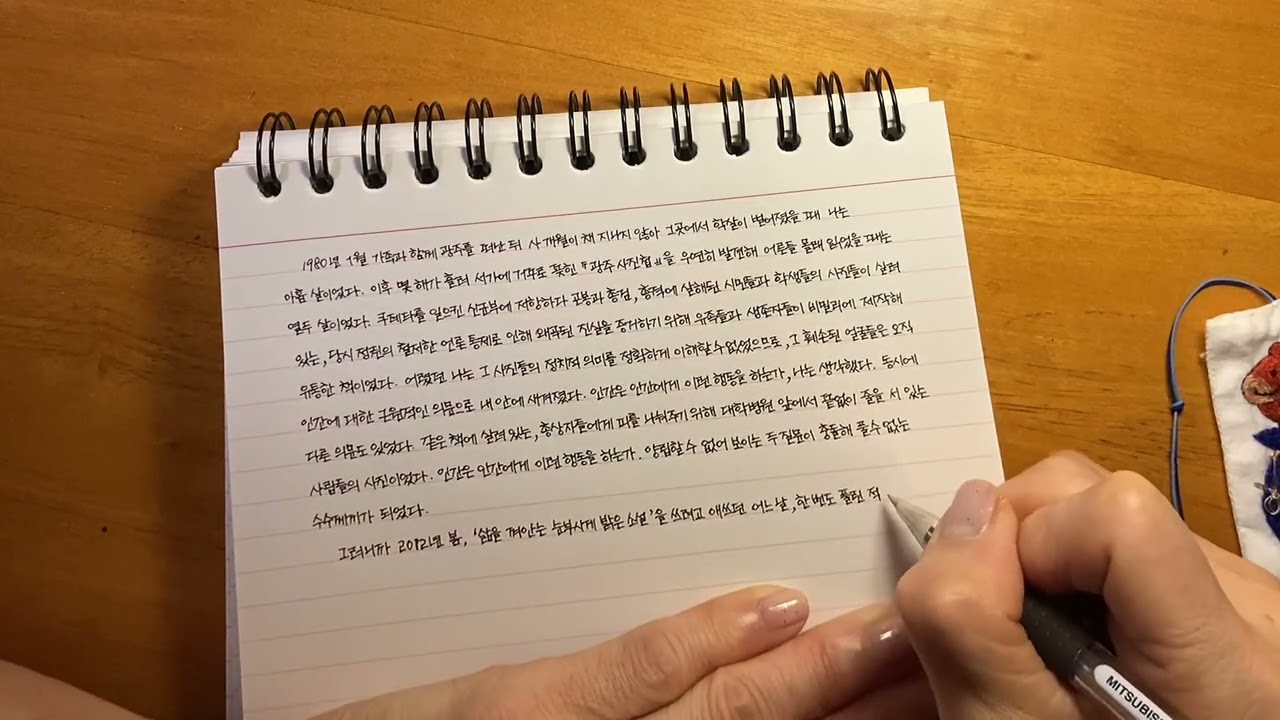 1980년 1월 가족과 함께 광주를 떠난 뒤 사 개월이 채 지나지 않아 그곳에서 학살이 벌어졌을 때 나는
아홉 살이었다. 이후 몇 해가 흘러 서가에 거꾸로 꽂힌 『광주 사진첩』을 우연히 발견해 어른들 몰래 읽었을 때는
열두 살이었다. 쿠데타를 일으킨 신군부에 저항하다 곤봉과 총검, 총격에 살해된 시민들과 학생들의 사진들이 실려
있는, 당시 정권의 철저한 언론 통제로 인해 왜곡된 진실을 증거하기 위해 유족들과 생존자들이 비밀리에 제작해
유통한 책이었다. 어렸던 나는 그 사진들의 정치적 의미를 정확하게 이해할 수 없었으므로, 그 훼손된 얼굴들은 오직
인간에 대한 근원적인 의문으로 내 안에 새겨졌다. 인간은 인간에게 이런 행동을 하는가, 나는 생각했다. 동시에
다른 의문도 있었다. 같은 책에 실려 있는, 총상자들에게 피를 나눠주기 위해 대학병원 앞에서 끝없이 줄을 서 있는
사람들의 사진이었다. 인간은 인간에게 이런 행동을 하는가. 양립할 수 없어 보이는 두 질문이 충돌해 풀 수 없는
수수께끼가 되었다.
그러니까 2012년 봄, '삶을 껴안는 눈부시게 밝은 소설'을 쓰려고 애쓰던 어느 날, 한 번도 풀린 적
MITSUBIS